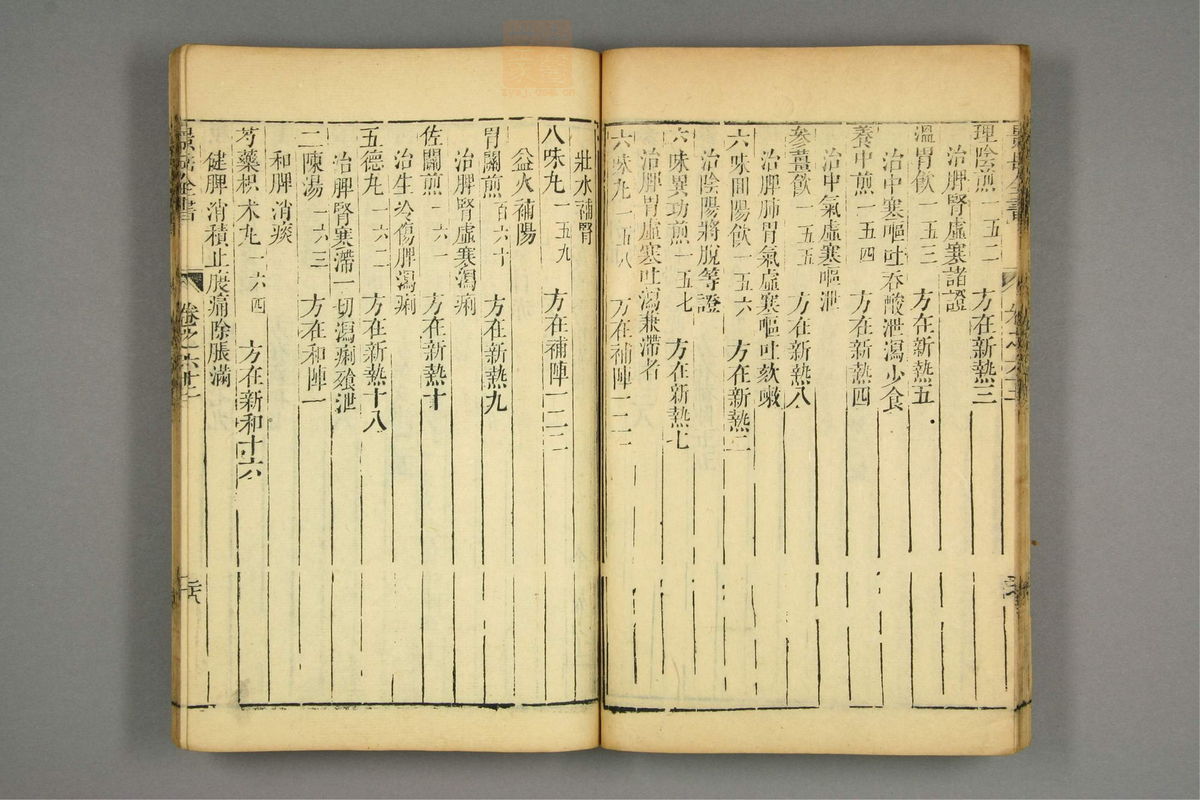 理陰煎一五二 方在新熱三
治脾腎虛寒諸證
溫胃飲一五三 方在新熱五
治中寒嘔吐吞酸泄瀉少食
養中煎一五四 方在新熱四
治中氣虛寒嘔泄
參薑飲一五五 方在新熱八
治脾肺胃氣虛寒嘔吐欬嗽
六味回陽飲一五六 方在新熱二
治陰陽將脫等證
六味異功煎一五七 方在新熱七
治脾胃虛寒吐瀉兼滯者
六味丸一五八 方在補陣
壯水補腎
八味丸一五九 方在補陣一二二
益火補陽
胃關煎百六十 方在新熱九
治脾腎虛寒瀉痢
佐關煎一六一 方在新熱十
治生冷傷脾瀉痢
五德丸一六二 方在新熱十八
治脾腎寒滯一切瀉痢飱泄
二陳湯一六三 方在和陣一
和脾消痰
芍藥枳朮丸一六四 方在新和十六
健脾消積止腹痛除脹滿
景岳全書 卷之六十三